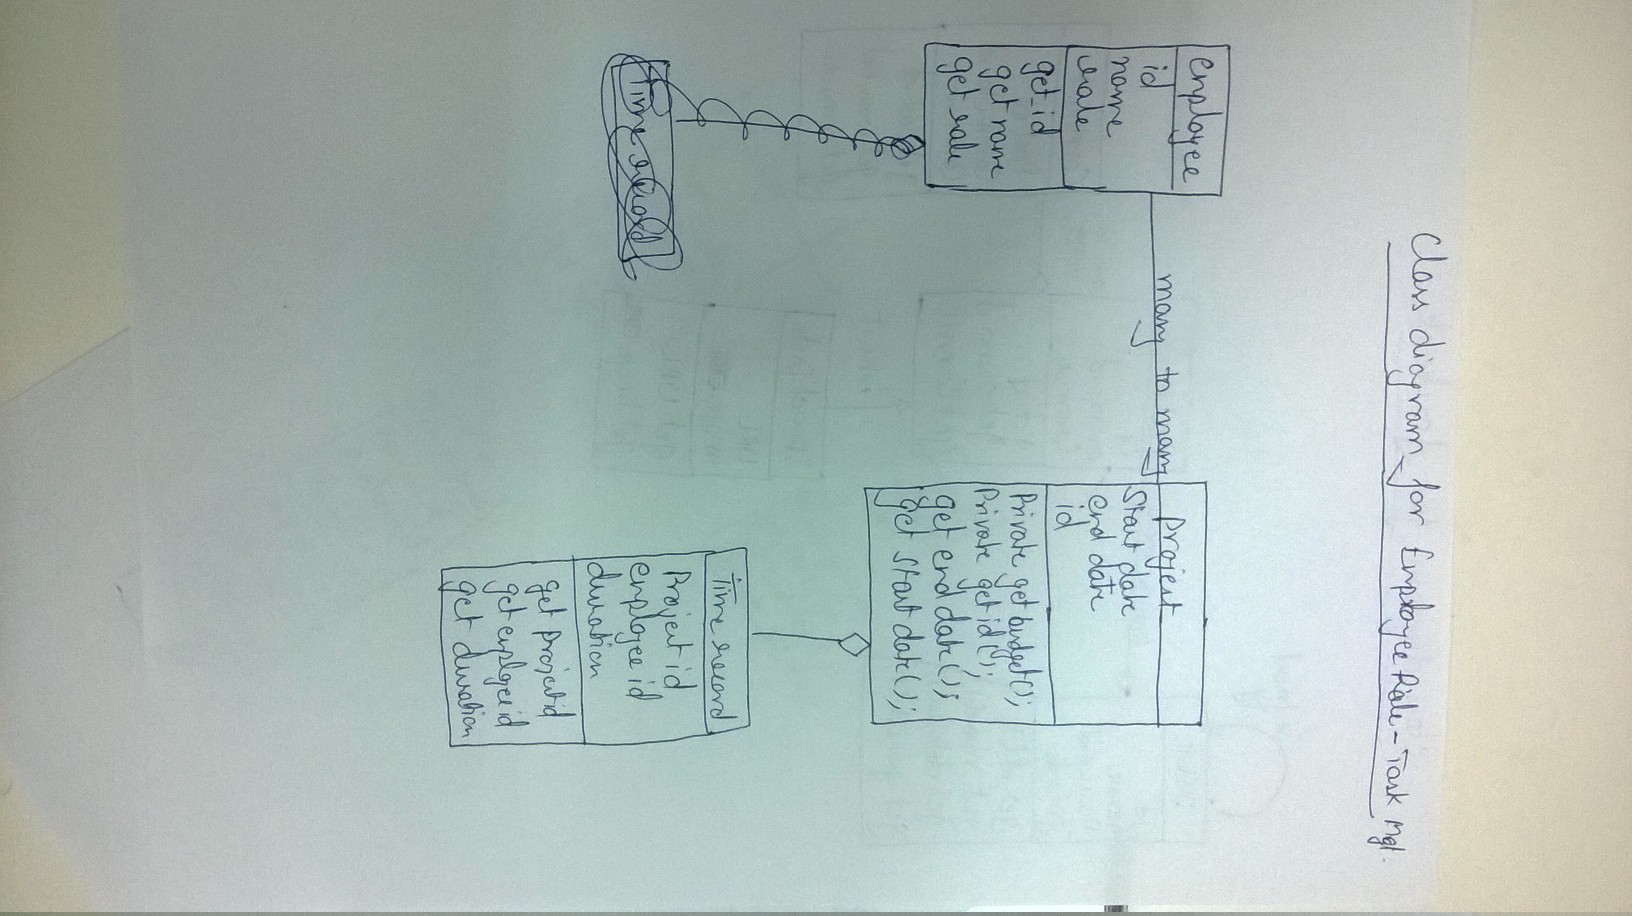 Class diagram for Employee Role - Task Mgt.
employee
id
name
role
get id
get name
get role
many to many
project
Start date
end date
id
Private get budget();
Private get id();
get end date();
get start date();
Time record
Project id
employee id
duration
get project id
get employee id
get duration
Time record